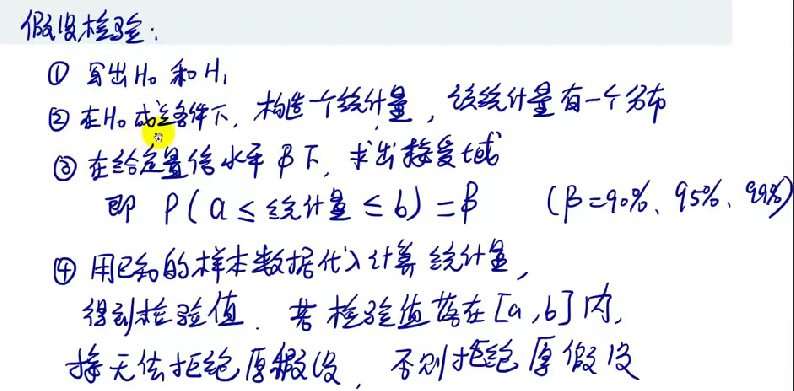 假设检验:
① 写出H₀ 和 H₁
② 在H₀ 成立条件下, 构造一个统计量, 该统计量有一个分布
③ 在给定置信水平 β 下, 求出接受域
即 P(a ≤ 统计量 ≤ b) = β (β=90%、95%、99%)
④ 用已知的样本数据代入计算统计量,
得到检验值. 若检验值落在[a,b]内,
接无法拒绝原假设, 否则拒绝原假设